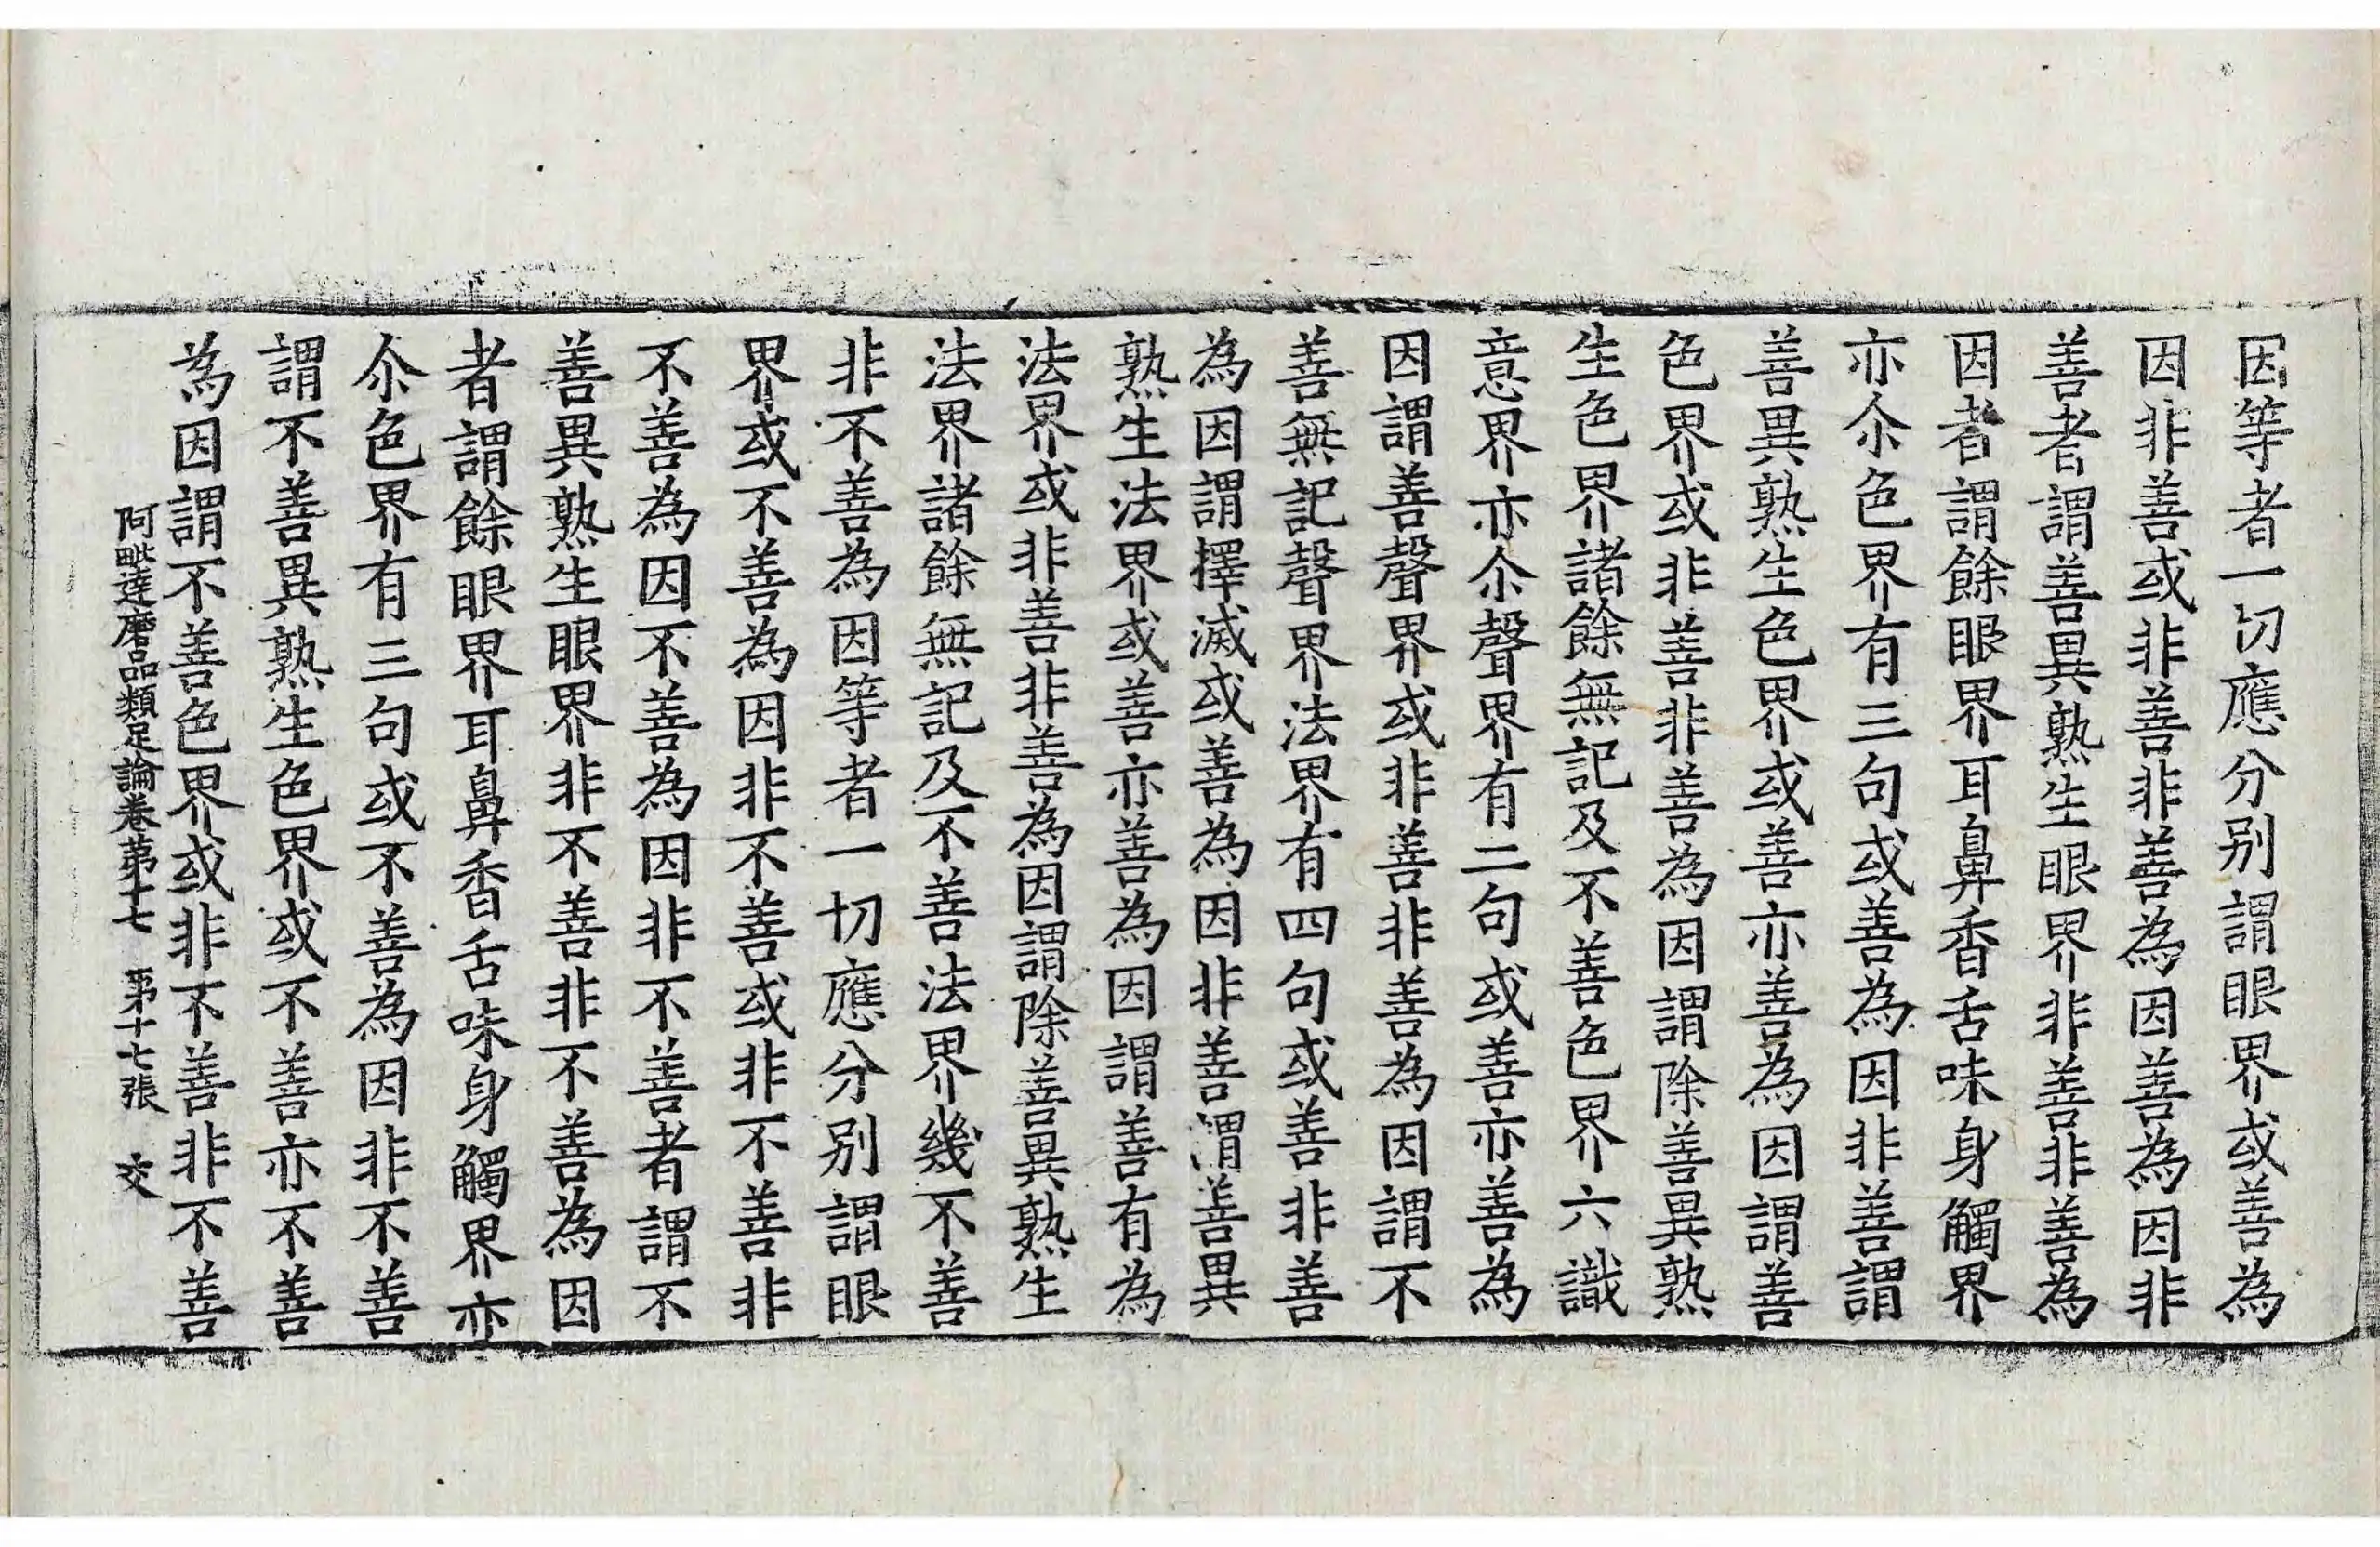 因等者一切應分別謂眼界或善為
因非善或非善非善為因善為因非
善者謂善異熟生眼界非善非善為
因者謂餘眼界耳鼻香舌味身觸界
亦尒色界有三句或善為因非善謂
善異熟生色界或善亦善為因謂善
色界或非善非善為因謂除善異熟
生色界諸餘無記及不善色界六識
意界亦尒聲界有二句或善亦善為
因謂善聲界或非善非善為因謂不
善無記聲界法界有四句或善非善
為因謂擇滅或善為因非善謂善異
熟生法界或善亦善為因謂善有為
法界或非善非善為因謂除善異熟生
法界諸餘無記及不善法界幾不善
非不善為因等者一切應分別謂眼
界或不善為因非不善或非不善非
不善為因不善為因非不善者謂不
善異熟生眼界非不善非不善為因
者謂餘眼界耳鼻香舌味身觸界亦
尒色界有三句或不善為因非不善
謂不善異熟生色界或不善亦不善
為因謂不善色界或非不善非不善
阿毗達磨品類足論卷苐十七 苐十七張 交